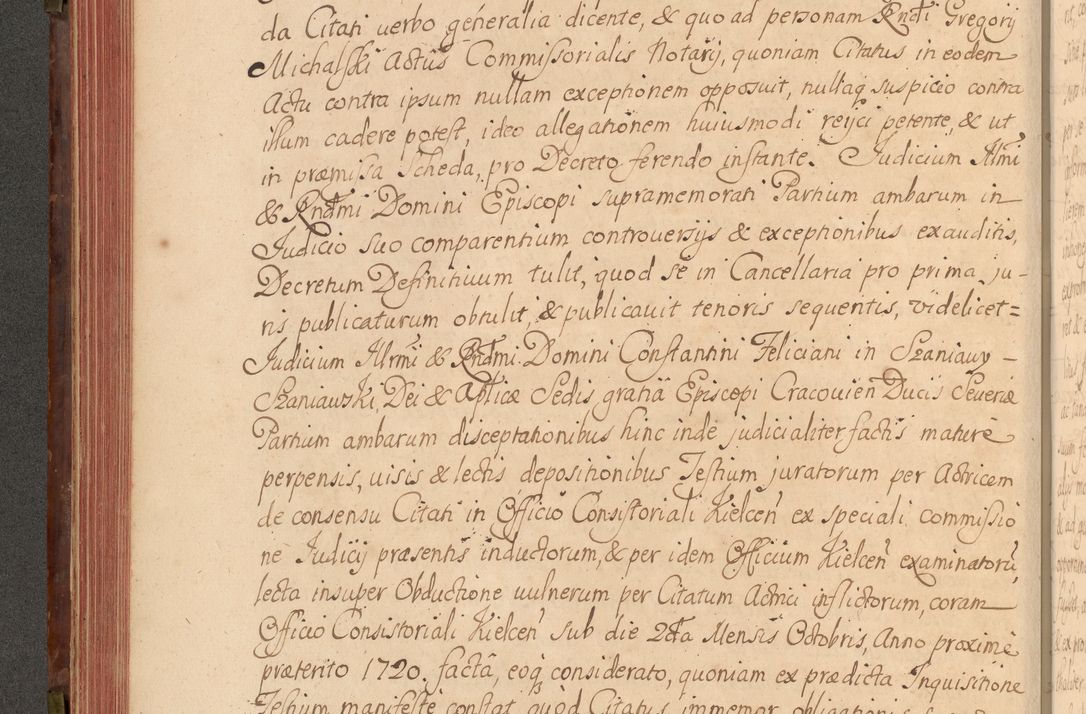 da Citati verbo generalia dicente, & quo ad personam Rndi Gregorij
Michalski Actûs Commissorialis Notarij, quoniam Citatus in eodem
Actu contra ipsum nullam exceptionem opposuit, nullaq suspicio contra
illum cadere potest, ideo allegationem huiusmodi reijci petente, & ut
in præmissa Scheda, pro Decreto ferendo instante. Judicium Illmi
& Rndmi Domini Episcopi supramemorati Partium ambarum in
Judicio suo comparentium controuersijs & exceptionibus exauditis,
Decretum Definitiuum tulit, quod se in Cancellaria pro prima ju-
ris publicaturum obtulit, & publicauit tenoris sequentis, videlicet=
Judicium Illrmi & Rndmi Domini Constantini Feliciani in Szaniawy –
Szaniawski, Dei & Aplicæ Sedis gratiâ Episcopi Cracouien Ducis Seueriæ
Partium ambarum disceptationibus hinc inde judicialiter factis maturè
perpensis, uisis & lectis depositionibus Testium juratorum per Actricem
de consensu Citati in Officio Consistoriali Kielcen ex speciali commissio
ne Judicij præsentis inductorum, & per idem Officium Kielcen examinatorũ,
lecta insuper Obductione uulnerum per Citatum Actrici inflictorum, coram
Officio Consistoriali Kielcen sub die 2da Mensis Octobris, Anno proximè
præterito 1720. factâ, eoq considerato, quoniam ex prædicta Inquisitione
Testium manifeste constat, quòd Citatus immemor obligationis